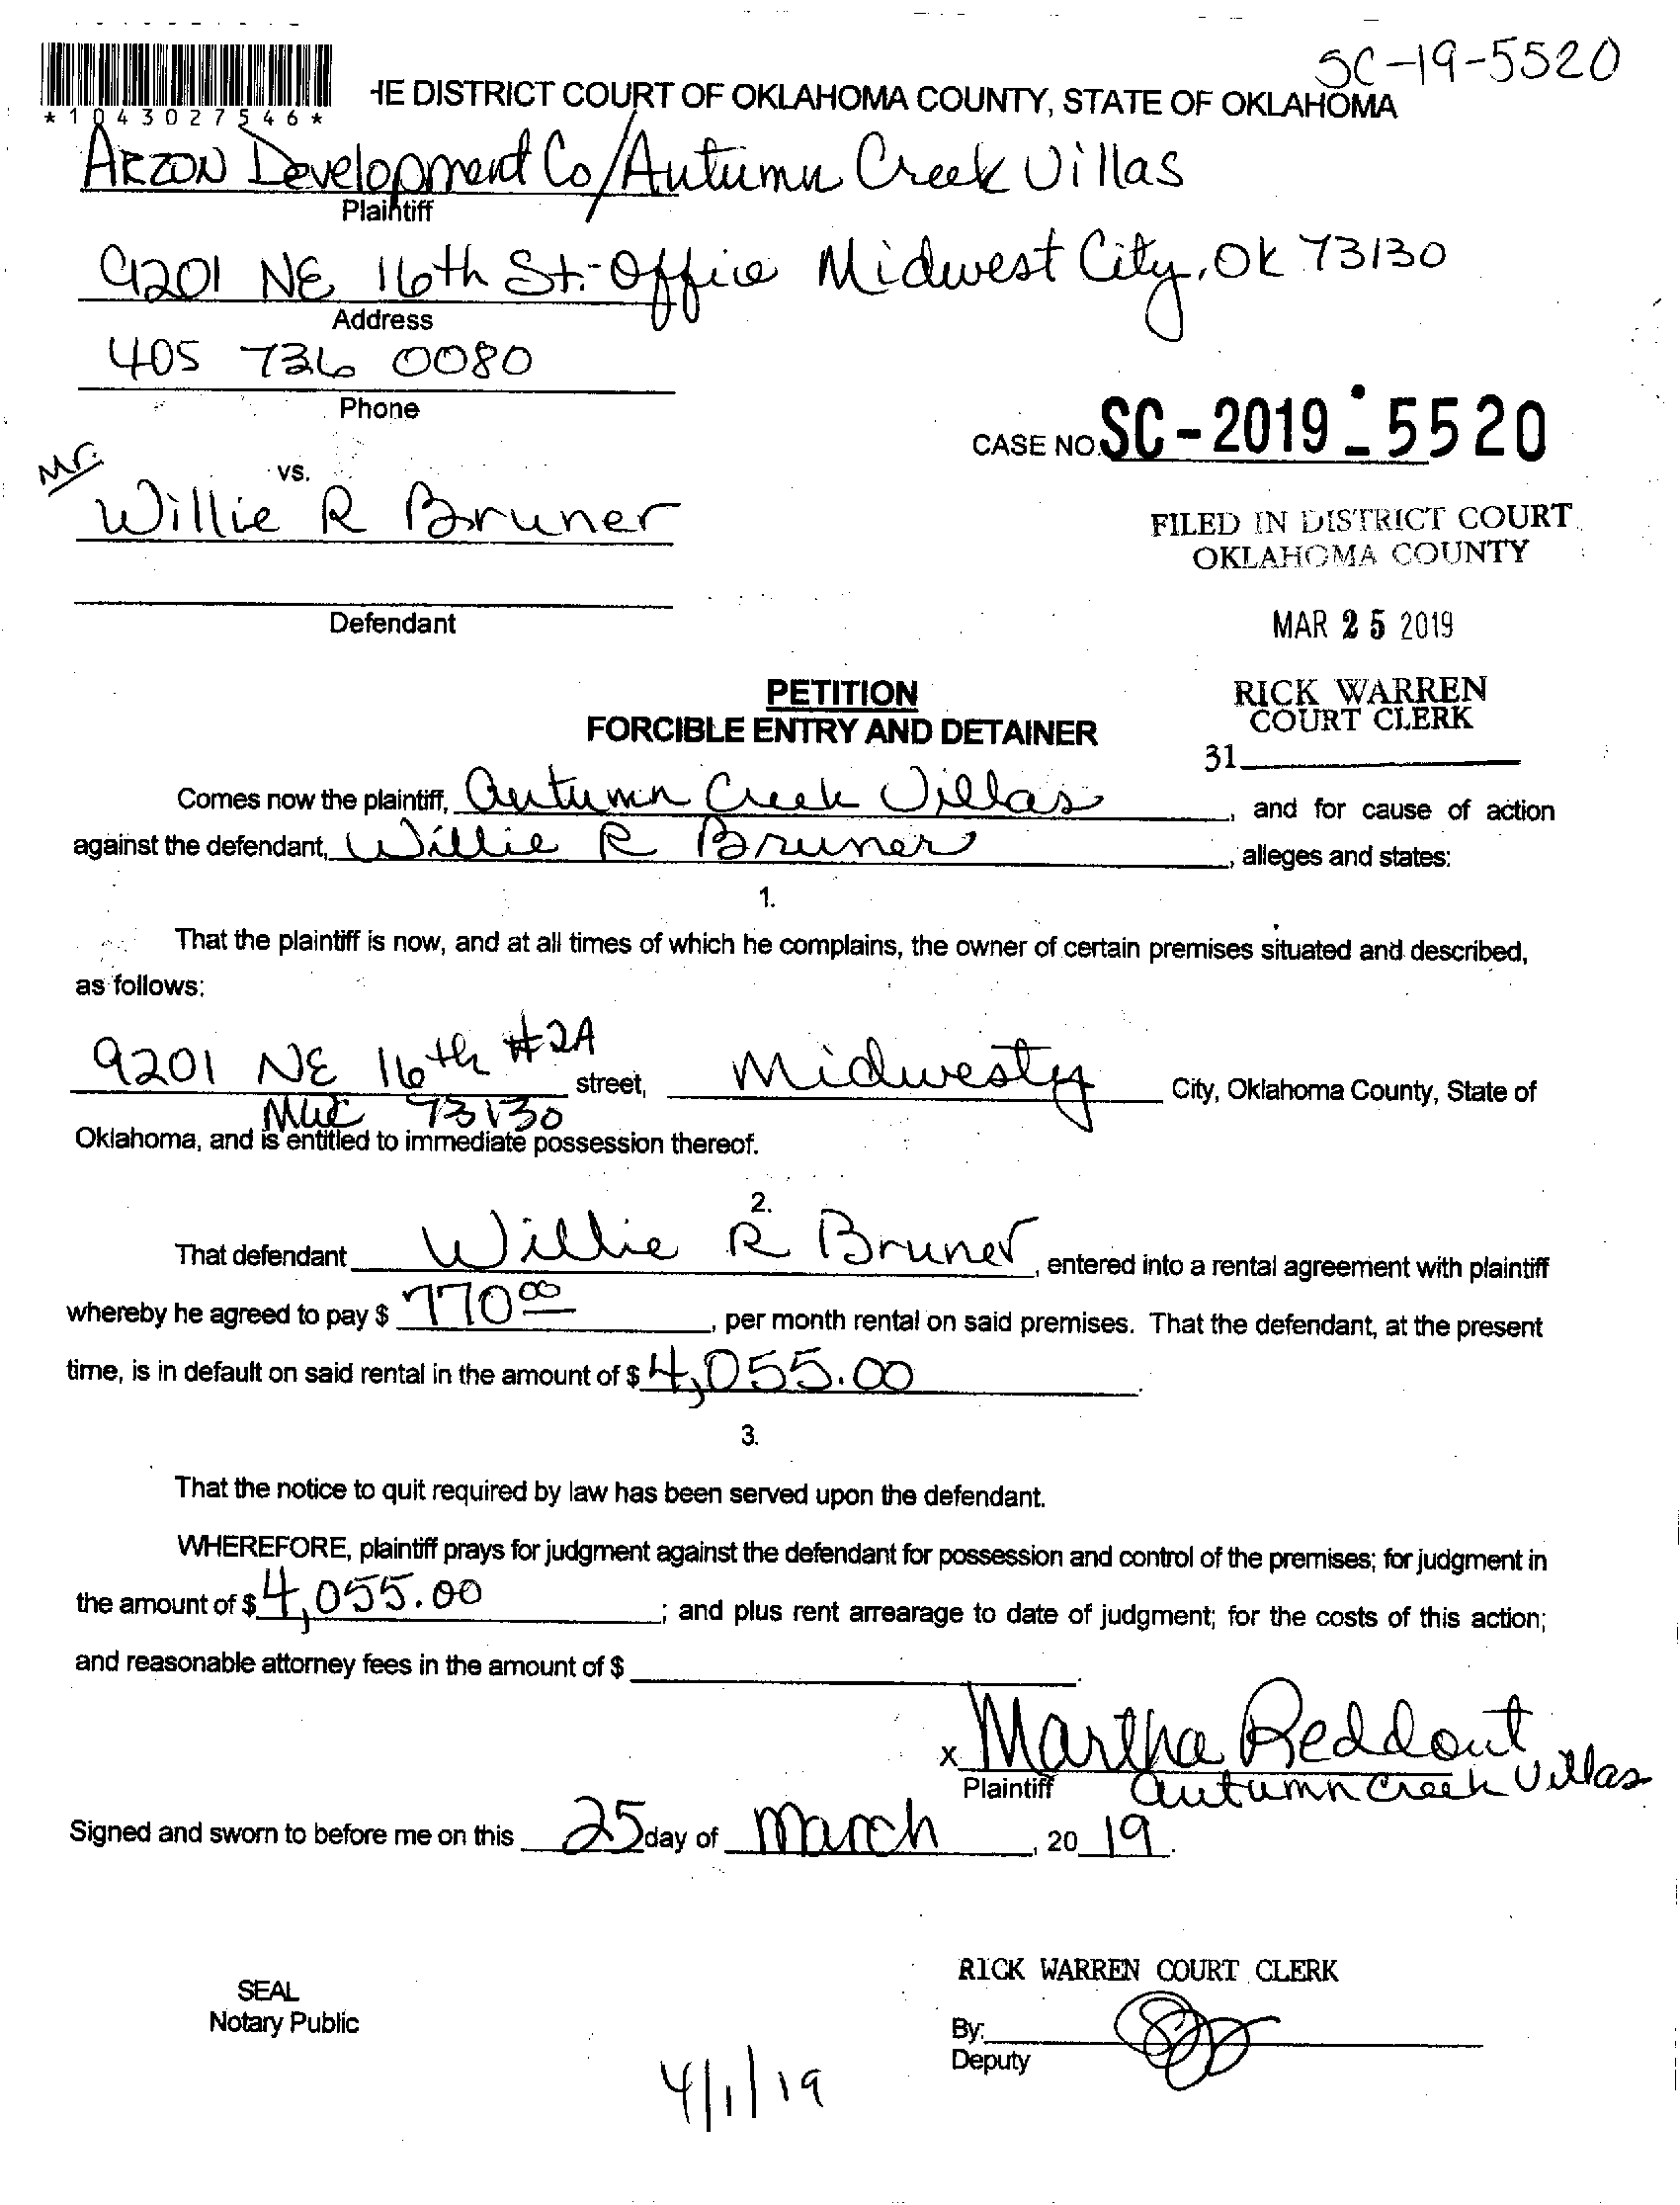 SC-19-5520
*1043027546*
HE DISTRICT COURT OF OKLAHOMA COUNTY, STATE OF OKLAHOMA
ARZON Development Co/Autumn Creek Villas
Plaintiff
9201 NE 16th St.-Office Midwest City, OK 73130
Address
405 736 0080
Phone
CASE NO. SC-2019-5520
Mr.
vs.
Willie R Bruner
FILED IN DISTRICT COURT
OKLAHOMA COUNTY
Defendant
MAR 25 2019
PETITION
FORCIBLE ENTRY AND DETAINER
RICK WARREN
COURT CLERK
31
Comes now the plaintiff, Autumn Creek Villas, and for cause of action
against the defendant, Willie R Bruner, alleges and states:
1.
That the plaintiff is now, and at all times of which he complains, the owner of certain premises situated and described,
as follows:
9201 NE 16th #2A street, Midwesty City, Oklahoma County, State of
MWC 73130
Oklahoma, and is entitled to immediate possession thereof.
2.
That defendant Willie R Bruner, entered into a rental agreement with plaintiff
whereby he agreed to pay $ 770 00, per month rental on said premises. That the defendant, at the present
time, is in default on said rental in the amount of $ 4,055.00.
3.
That the notice to quit required by law has been served upon the defendant.
WHEREFORE, plaintiff prays for judgment against the defendant for possession and control of the premises; for judgment in
the amount of $ 4,055.00; and plus rent arrearage to date of judgment; for the costs of this action;
and reasonable attorney fees in the amount of $.
x Martha Reddout
Plaintiff Autumn Creek Villas
Signed and sworn to before me on this 25 day of March, 20 19.
RICK WARREN COURT CLERK
SEAL
Notary Public
By:
Deputy
4/1/19